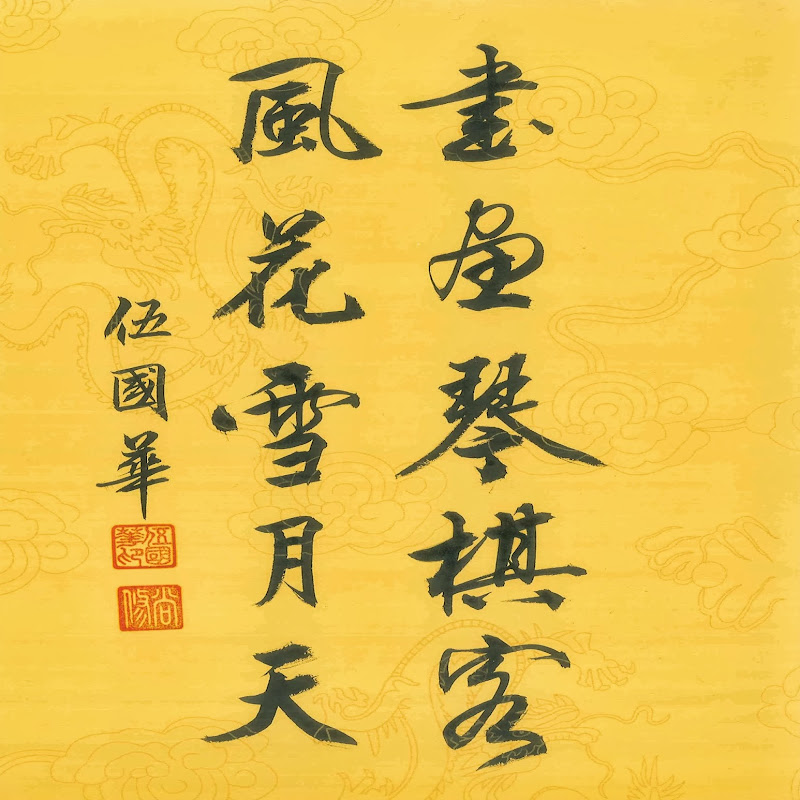 書畫琴棋客
風花雪月天
伍國華
伍國華印
尚修